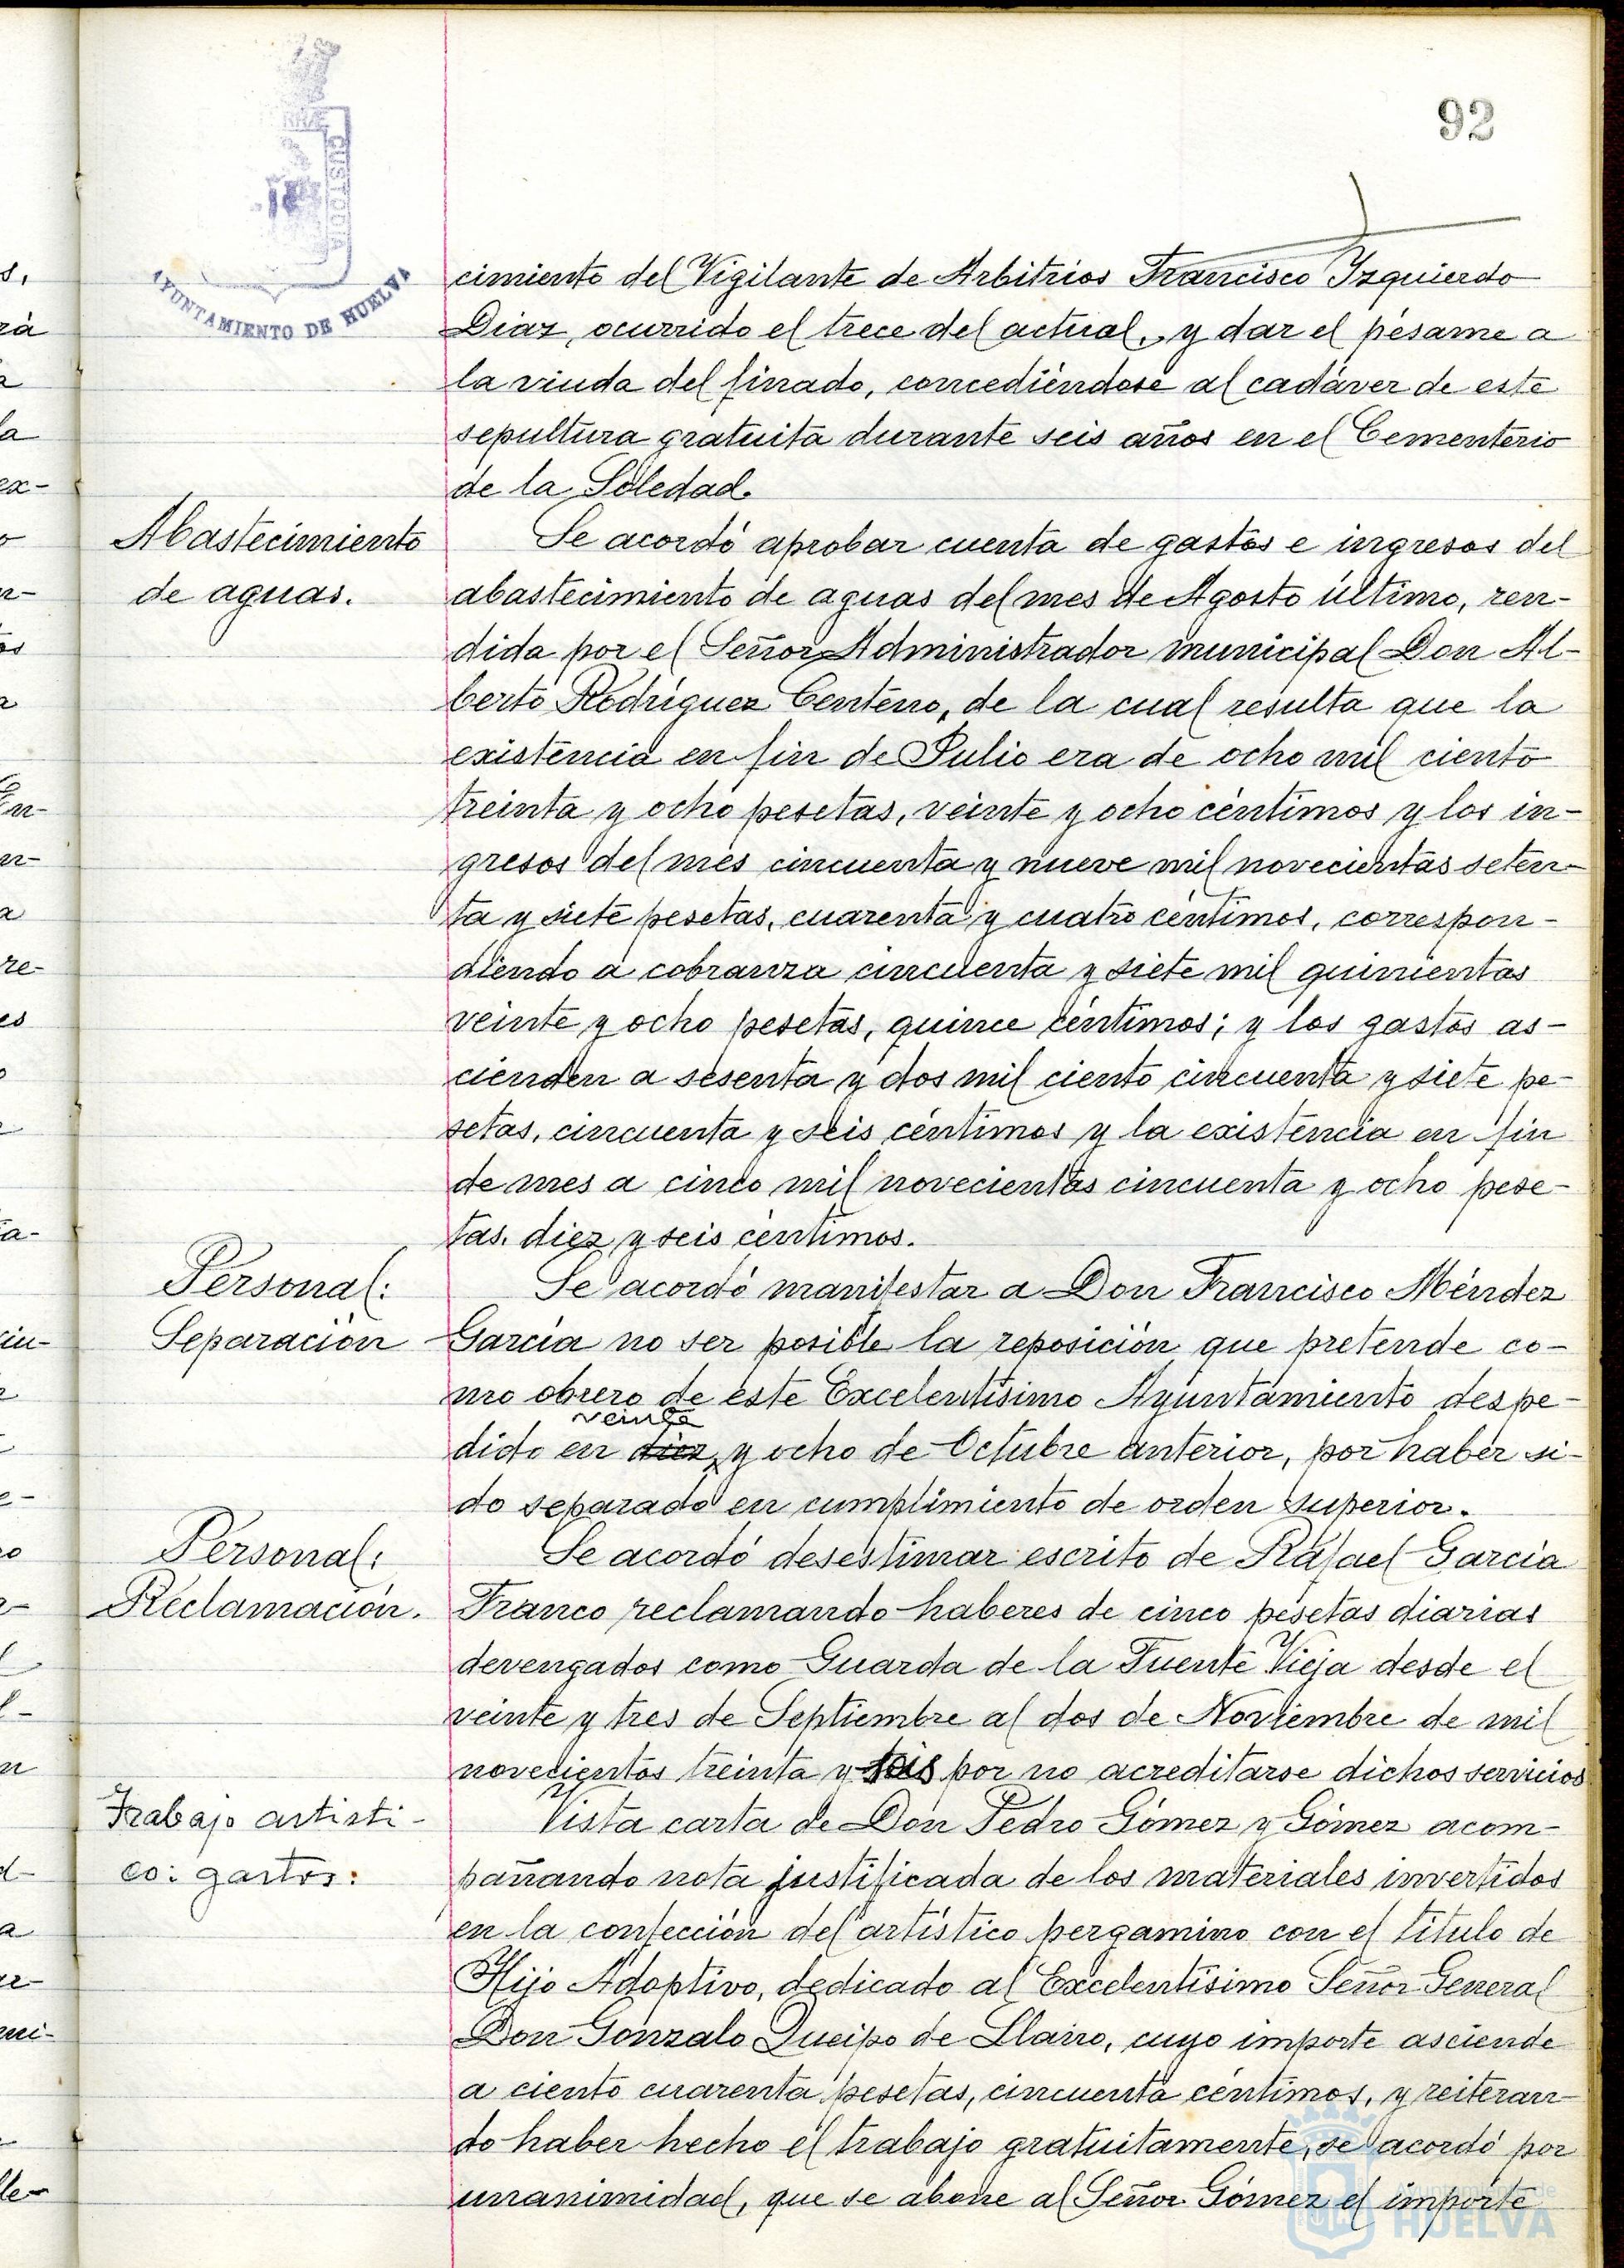 92
AYUNTAMIENTO DE HUELVA
cimiento del Vigilante de Arbitrios Francisco Izquierdo
Diaz, ocurrido el trece del actual, y dar el pésame a
la viuda del finado, concediéndose al cadáver de este
sepultura gratuita durante seis años en el Cementerio
de la Soledad.
Abastecimiento
de aguas.
Se acordó aprobar cuenta de gastos e ingresos del
abastecimiento de aguas del mes de Agosto último, ren-
dida por el Señor Administrador municipal Don Al-
berto Rodríguez Centeno, de la cual resulta que la
existencia en fin de Julio era de ocho mil ciento
treinta y ocho pesetas, veinte y ocho céntimos y los in-
gresos del mes cincuenta y nueve mil novecientas seten-
ta y siete pesetas, cuarenta y cuatro céntimos, correspon-
diendo a cobranza cincuenta y siete mil quinientas
veinte y ocho pesetas, quince céntimos; y los gastos as-
cienden a sesenta y dos mil ciento cincuenta y siete pe-
setas, cincuenta y seis céntimos y la existencia en fin
de mes a cinco mil novecientas cincuenta y ocho pese-
tas, diez y seis céntimos.
Personal:
Separación
Se acordó manifestar a Don Francisco Méndez
García no ser posible la reposición que pretende co-
mo obrero de este Excelentísimo Ayuntamiento despe-
veinte
dido en diez y ocho de Octubre anterior, por haber si-
do separado en cumplimiento de orden superior.
Personal:
Reclamación.
Se acordó desestimar escrito de Rafael García
Franco reclamando haberes de cinco pesetas diarias
devengados como Guarda de la Fuente Vieja desde el
veinte y tres de Septiembre al dos de Noviembre de mil
novecientos treinta y seis por no acreditarse dichos servicios
Trabajo artísti-
co: gastos:
Vista carta de Don Pedro Gómez y Gómez acom-
pañando nota justificada de los materiales invertidos
en la confección del artístico pergamino con el título de
Hijo Adoptivo, dedicado al Excelentísimo Señor General
Don Gonzalo Queipo de Llano, cuyo importe asciende
a ciento cuarenta pesetas, cincuenta céntimos, y reiteran-
do haber hecho el trabajo gratuitamente, se acordó por
unanimidad, que se abone al Señor Gómez el importe
Ayuntamiento de
HUELVA